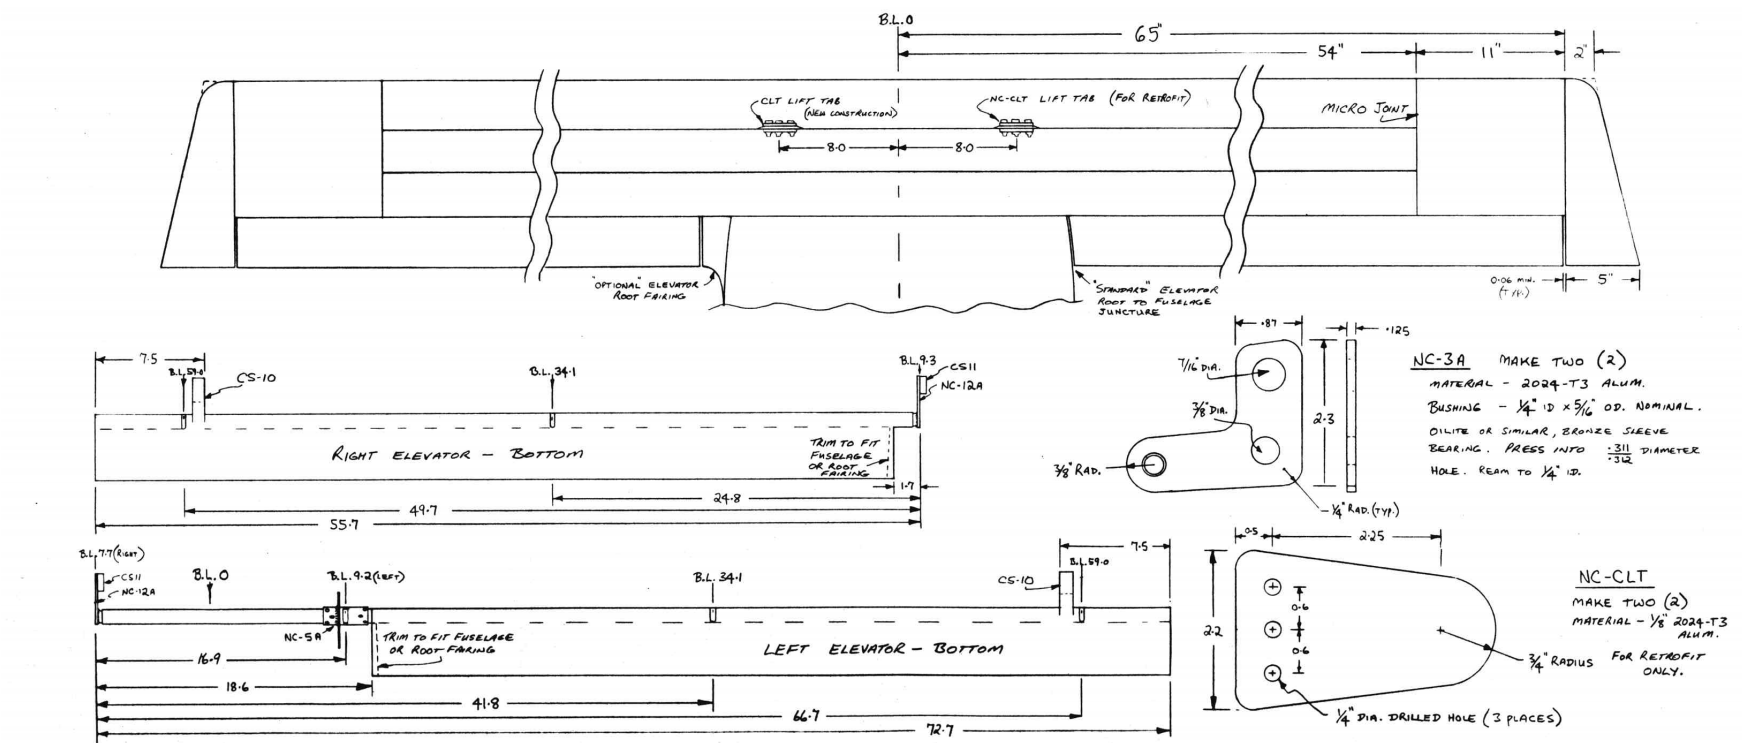 B.L.0
65"
54"
11"
2"
CLT LIFT TAB
(NEW CONSTRUCTION)
NC-CLT LIFT TAB (FOR RETROFIT)
MICRO JOINT
8.0
8.0
"OPTIONAL" ELEVATOR
ROOT FAIRING
"STANDARD" ELEVATOR
ROOT TO FUSELAGE
JUNCTURE
0.06 MIN.
(TYP.)
5"
7.5
B.L.59.0
CS-10
B.L.34.1
B.L.9.3
CS11
NC-12A
RIGHT ELEVATOR - BOTTOM
TRIM TO FIT
FUSELAGE
OR ROOT
FAIRING
1.7
24.8
49.7
55.7
.87
.125
7/16" DIA.
3/8" DIA.
2.3
3/8" RAD.
1/4" RAD.(TYP.)
NC-3A MAKE TWO (2)
MATERIAL - 2024-T3 ALUM.
BUSHING - 1/4" ID x 5/16" OD. NOMINAL.
OILITE OR SIMILAR, BRONZE SLEEVE
BEARING. PRESS INTO .311/.312 DIAMETER
HOLE. REAM TO 1/4" ID.
B.L.7.7(RIGHT)
CS11
NC-12A
B.L.0
B.L.9.2(LEFT)
NC-5A
B.L.34.1
CS-10
7.5
B.L.59.0
TRIM TO FIT FUSELAGE
OR ROOT FAIRING
LEFT ELEVATOR - BOTTOM
16.9
18.6
41.8
66.7
72.7
0.5
2.25
0.6
0.6
2.2
3/4" RADIUS
1/4" DIA. DRILLED HOLE (3 PLACES)
NC-CLT
MAKE TWO (2)
MATERIAL - 1/8" 2024-T3
ALUM.
FOR RETROFIT
ONLY.